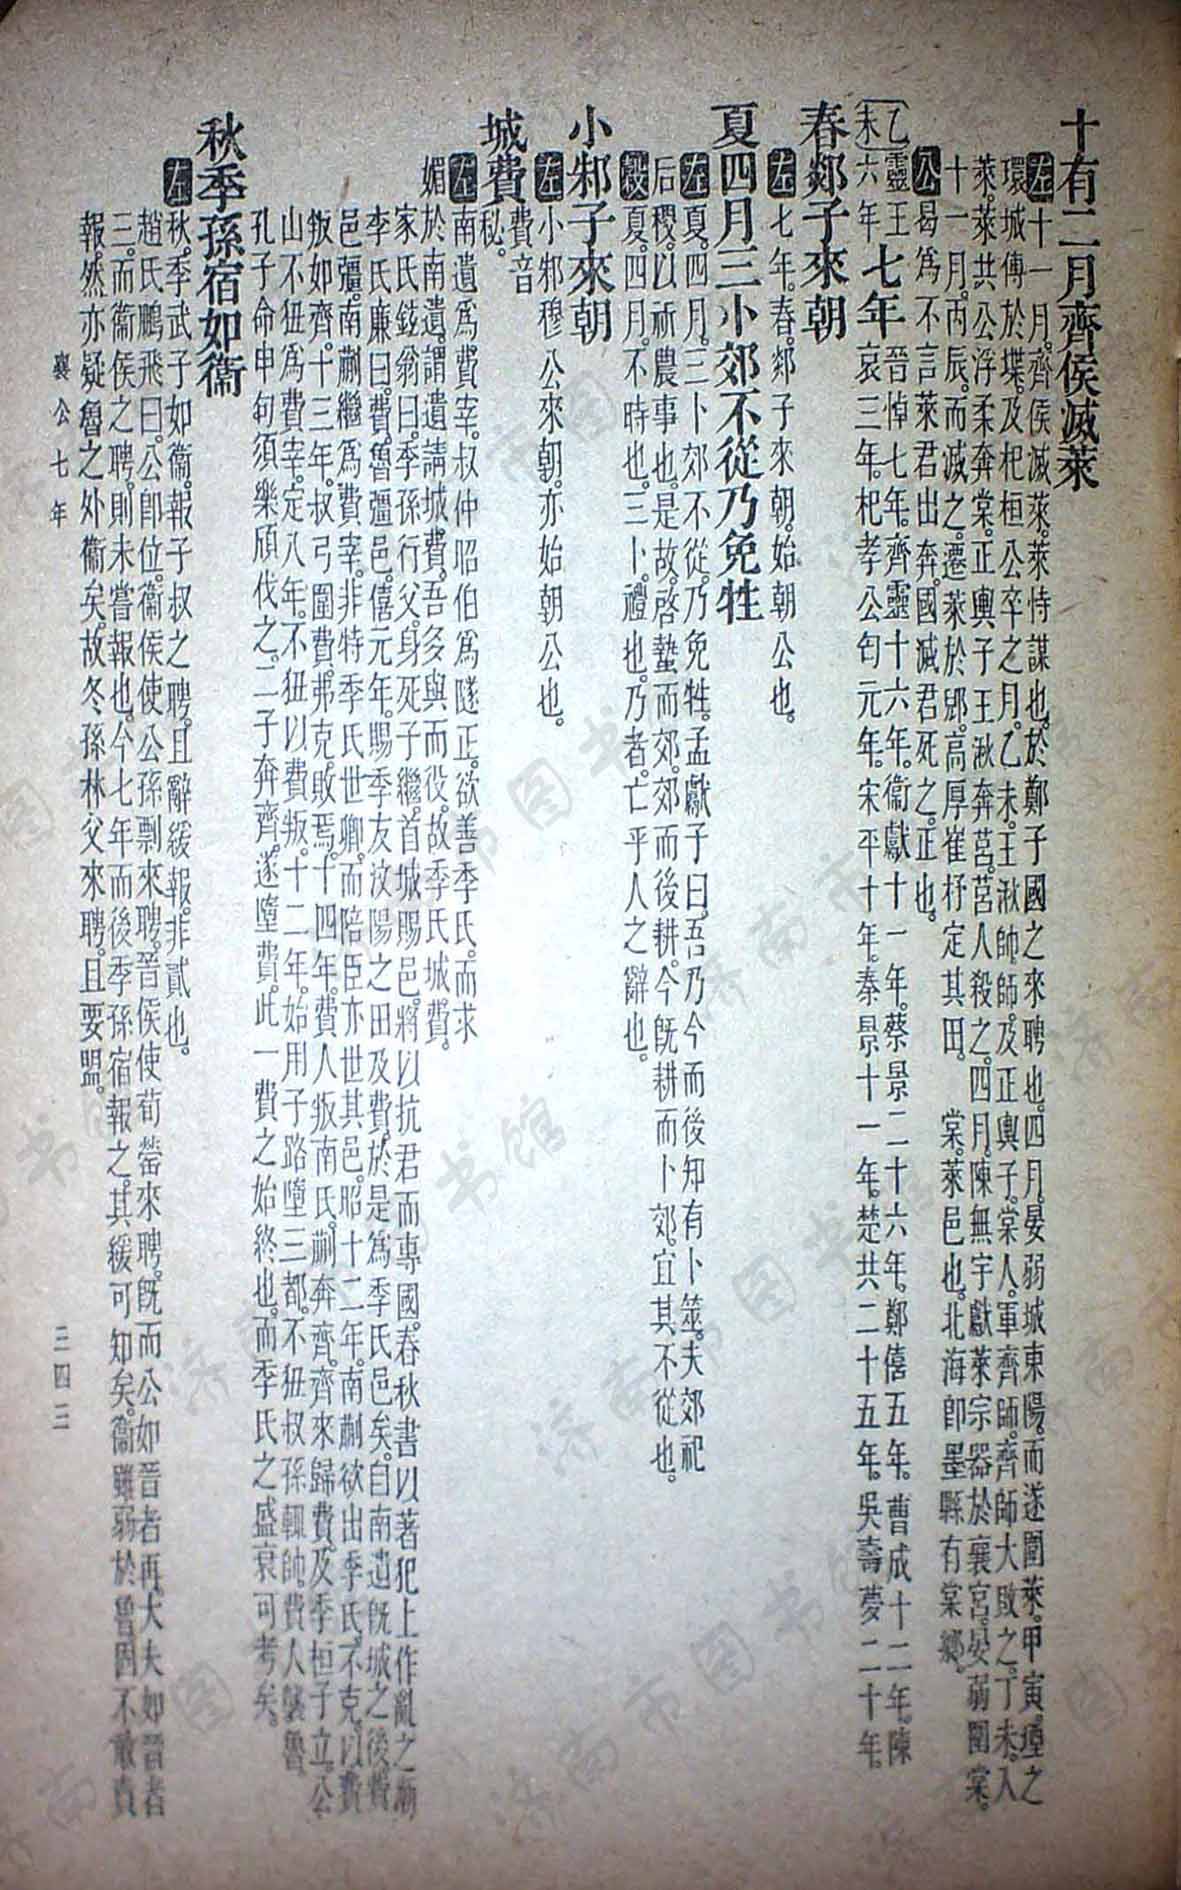 十有二月齊侯滅萊
左十一月。齊侯滅萊。萊恃謀也。於鄭子國之來聘也。四月。晏弱城東陽。而遂圍萊。甲寅。堙之
環城傅於堞。及杞桓公卒之月。乙未。王湫帥師。及正輿子。棠人。軍齊師。齊師大敗之。丁未。入
萊。萊共公浮柔奔棠。正輿子王湫奔莒。莒人殺之。四月。陳無宇獻萊宗器於襄宮。晏弱圍棠。
十一月。丙辰。而滅之。遷萊於郳。高厚崔杼定其田。 棠。萊邑也。北海卽墨縣有棠鄉。
公曷爲不言萊君出奔。國滅君死之。正也。
乙未 靈王六年 七年 晉悼七年。齊靈十六年。衞獻十一年。蔡景二十六年。鄭僖五年。曹成十二年。陳
哀三年。杞孝公匄元年。宋平十年。秦景十一年。楚共二十五年。吳壽夢二十年。
春郯子來朝
左七年。春。郯子來朝。始朝公也。
夏四月三卜郊不從乃免牲
左夏。四月。三卜郊不從。乃免牲。孟獻子曰。吾乃今而後知有卜筮。夫郊祀
后稷。以祈農事也。是故。啓蟄而郊。郊而後耕。今旣耕而卜郊。宜其不從也。
穀夏。四月。不時也。三卜。禮也。乃者。亡乎人之辭也。
小邾子來朝
左小邾穆公來朝。亦始朝公也。
城費
費音
秘。
左南遺爲費宰。叔仲昭伯爲隧正。欲善季氏。而求
媚於南遺。謂遺請城費。吾多與而役。故季氏城費。
家氏鉉翁曰。季孫行父。身死子繼。首城賜邑。將以抗君而專國。春秋書以著犯上作亂之漸
李氏廉曰。費。魯彊邑。僖元年。賜季友汶陽之田及費。於是爲季氏邑矣。自南遺旣城之後。費
邑彊。南蒯繼爲費宰。非特季氏世卿。而陪臣亦世其邑。昭十二年。南蒯欲出季氏。不克。以費
叛如齊。十三年。叔弓圍費。弗克。敗焉。十四年。費人叛南氏。蒯奔齊。齊來歸費。及季桓子立。公
山不狃爲費宰。定八年。不狃以費叛。十二年。始用子路墮三都。不狃叔孫輒帥費人襲魯
孔子命申句須樂頎伐之。二子奔齊。遂墮費。此一費之始終也。而季氏之盛衰可考矣。
秋季孫宿如衞
左秋。季武子如衞。報子叔之聘。且辭緩報。非貳也。
趙氏鵬飛曰。公卽位。衞侯使公孫剽來聘。晉侯使荀罃來聘。旣而公如晉者再。大夫如晉者
三。而衞侯之聘。則未嘗報也。今七年而後季孫宿報之。其緩可知矣。衞雖弱於魯。固不敢責
報。然亦疑魯之外衞矣。故冬孫林父來聘。且要盟。
襄公七年 三四三